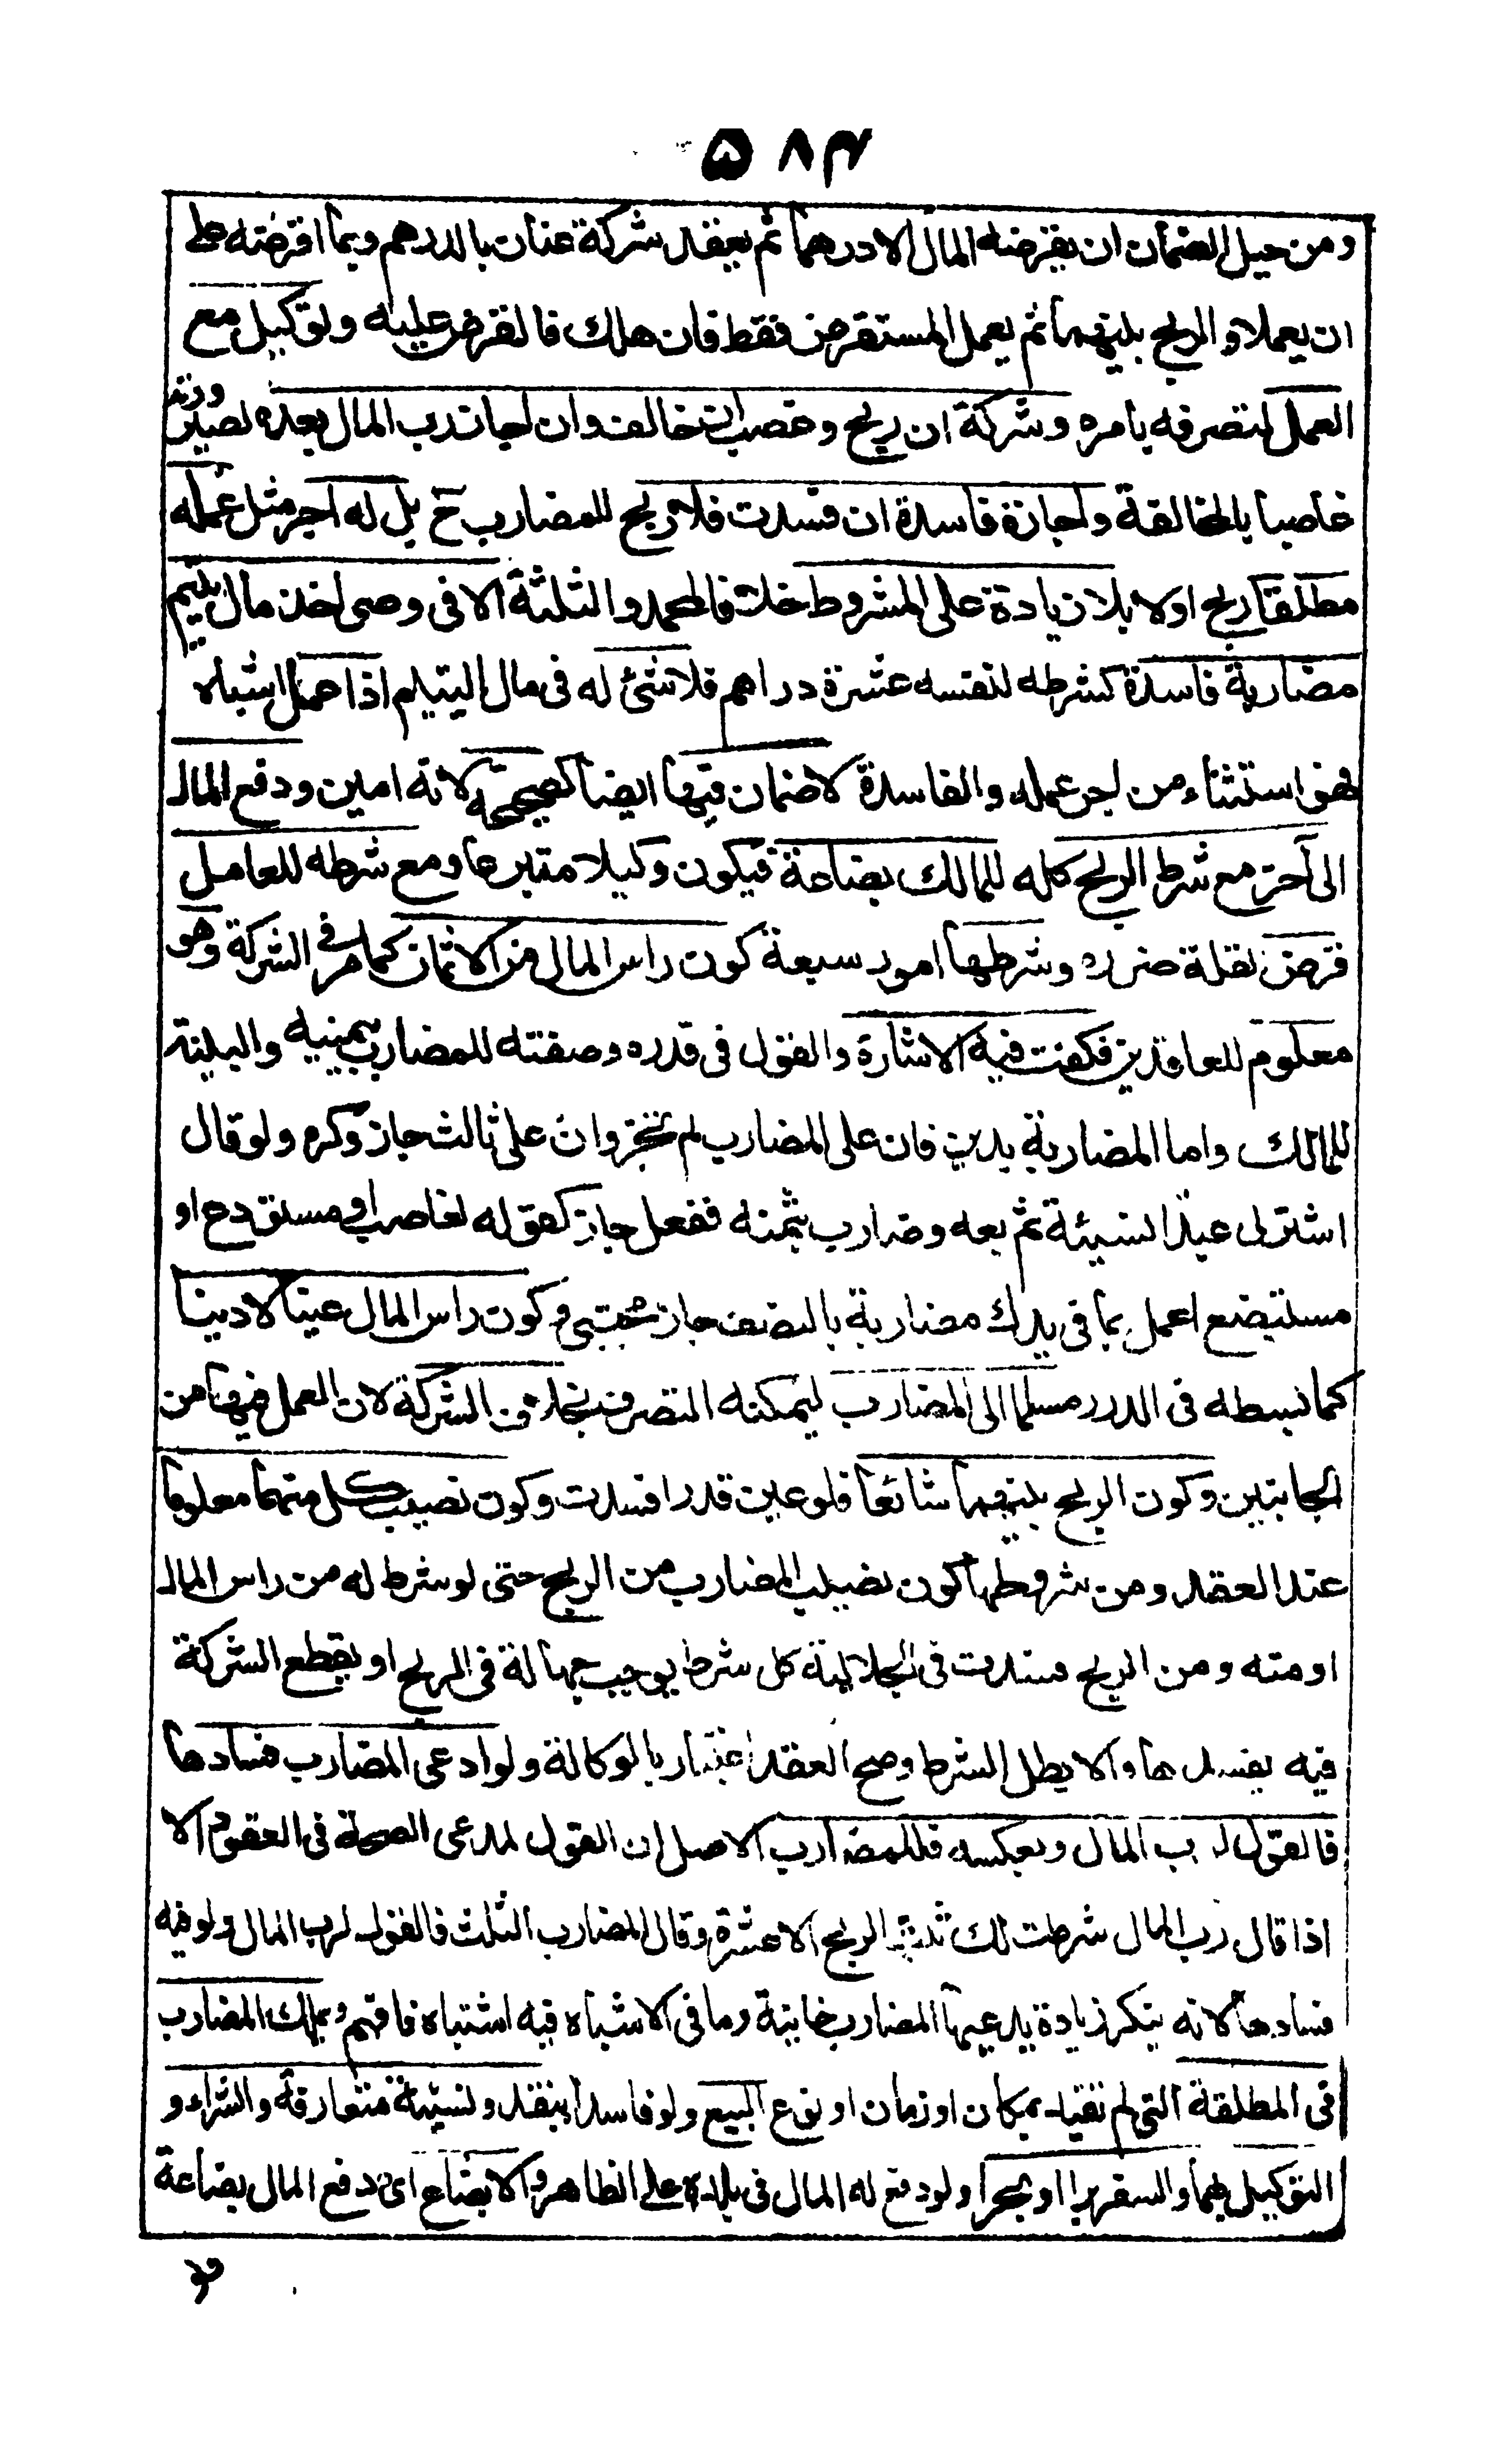 ۵۸۴
ومن حيل الضمان ان يقرضه المال الا درهما ثم يعقد شركة عنان بالدرهم وبما اقرضه على
ان يعملا والربح بينهما ثم يعمل المستقرض فقط فان هلك فالقرض عليه وتوكيل مع
العمل لتصرفه بامره وشركة ان ربح وغصب ان خالف وان اجاز رب المال بعده لصيرورته
غاصبا بالمخالفة واجازة فاسدة ان فسدت فلا ربح للمضارب ح بل له اجر مثل عمله
مطلقا ربح اولا بلا زيادة على المشروط خلافا لمحمد والثلثة الا في وصى اخذ مال يتيم
مضاربة فاسدة كشرطه لنفسه عشرة دراهم فلا شئ له في مال اليتيم اذا عمل اشباه
فهو استثناء من اجر عمله والفاسدة لا ضمان فيها ايضا كصحيحة لانه امين ودفع المال
الى آخر مع شرط الربح كله للمالك بضاعة فيكون وكيلا متبرعا ومع شرطه للعامل
قرض لقلة ضرره وشرطها امور سبعة كون راس المال من الاثمان كما مر في الشركة وهو
معلوم للعاقدين فكفت فيه الاشارة والقول في قدره وصفته للمضارب بيمينه والبينة
للمالك واما المضاربة بدين فان على المضارب لم تجز وان على ثالث جاز وكره ولو قال
اشتر لى عبدا نسيئة ثم بعه وضارب بثمنه ففعل جاز كقوله لغاصب او مستودع او
مستبضع اعمل بما في يدك مضاربة بالنصف جاز مجتبى وكون راس المال عينا لا دينا
كما بسطه في الدرر مسلما الى المضارب ليمكنه التصرف بخلاف الشركة لان العمل فيها من
الجانبين وكون الربح بينهما شائعا فلو عين قدرا فسدت وكون نصيب كل منهما معلوما
عند العقد ومن شروطها كون نصيب المضارب من الربح حتى لو شرط له من راس المال
او منه ومن الربح فسدت في الجلالية كل شرط يوجب جهالة في الربح او يقطع الشركة
فيه يفسدها والا بطل الشرط وصح العقد اعتبار بالوكالة ولو ادعى المضارب فسادها
فالقول لرب المال وبعكسه فللمضارب الاصل ان القول لمدعى الصحة في العقود الا
اذا قال رب المال شرطت لك ثلث الربح الا عشرة وقال المضارب الثلث فالقول لرب المال ولو فيه
فسادها لانه ينكر زيادة يدعيها المضارب خانية وما في الاشباه فيه اشتباه فافهم ويملك المضارب
في المطلقة التي لم تقيد بمكان او زمان او نوع البيع ولو فاسدا بنقد ونسيئة متعارفة والشراء و
التوكيل بهما والسفر برا او بحرا ولو دفع له المال في بلده على الظاهر والابضاع اى دفع المال بضاعة